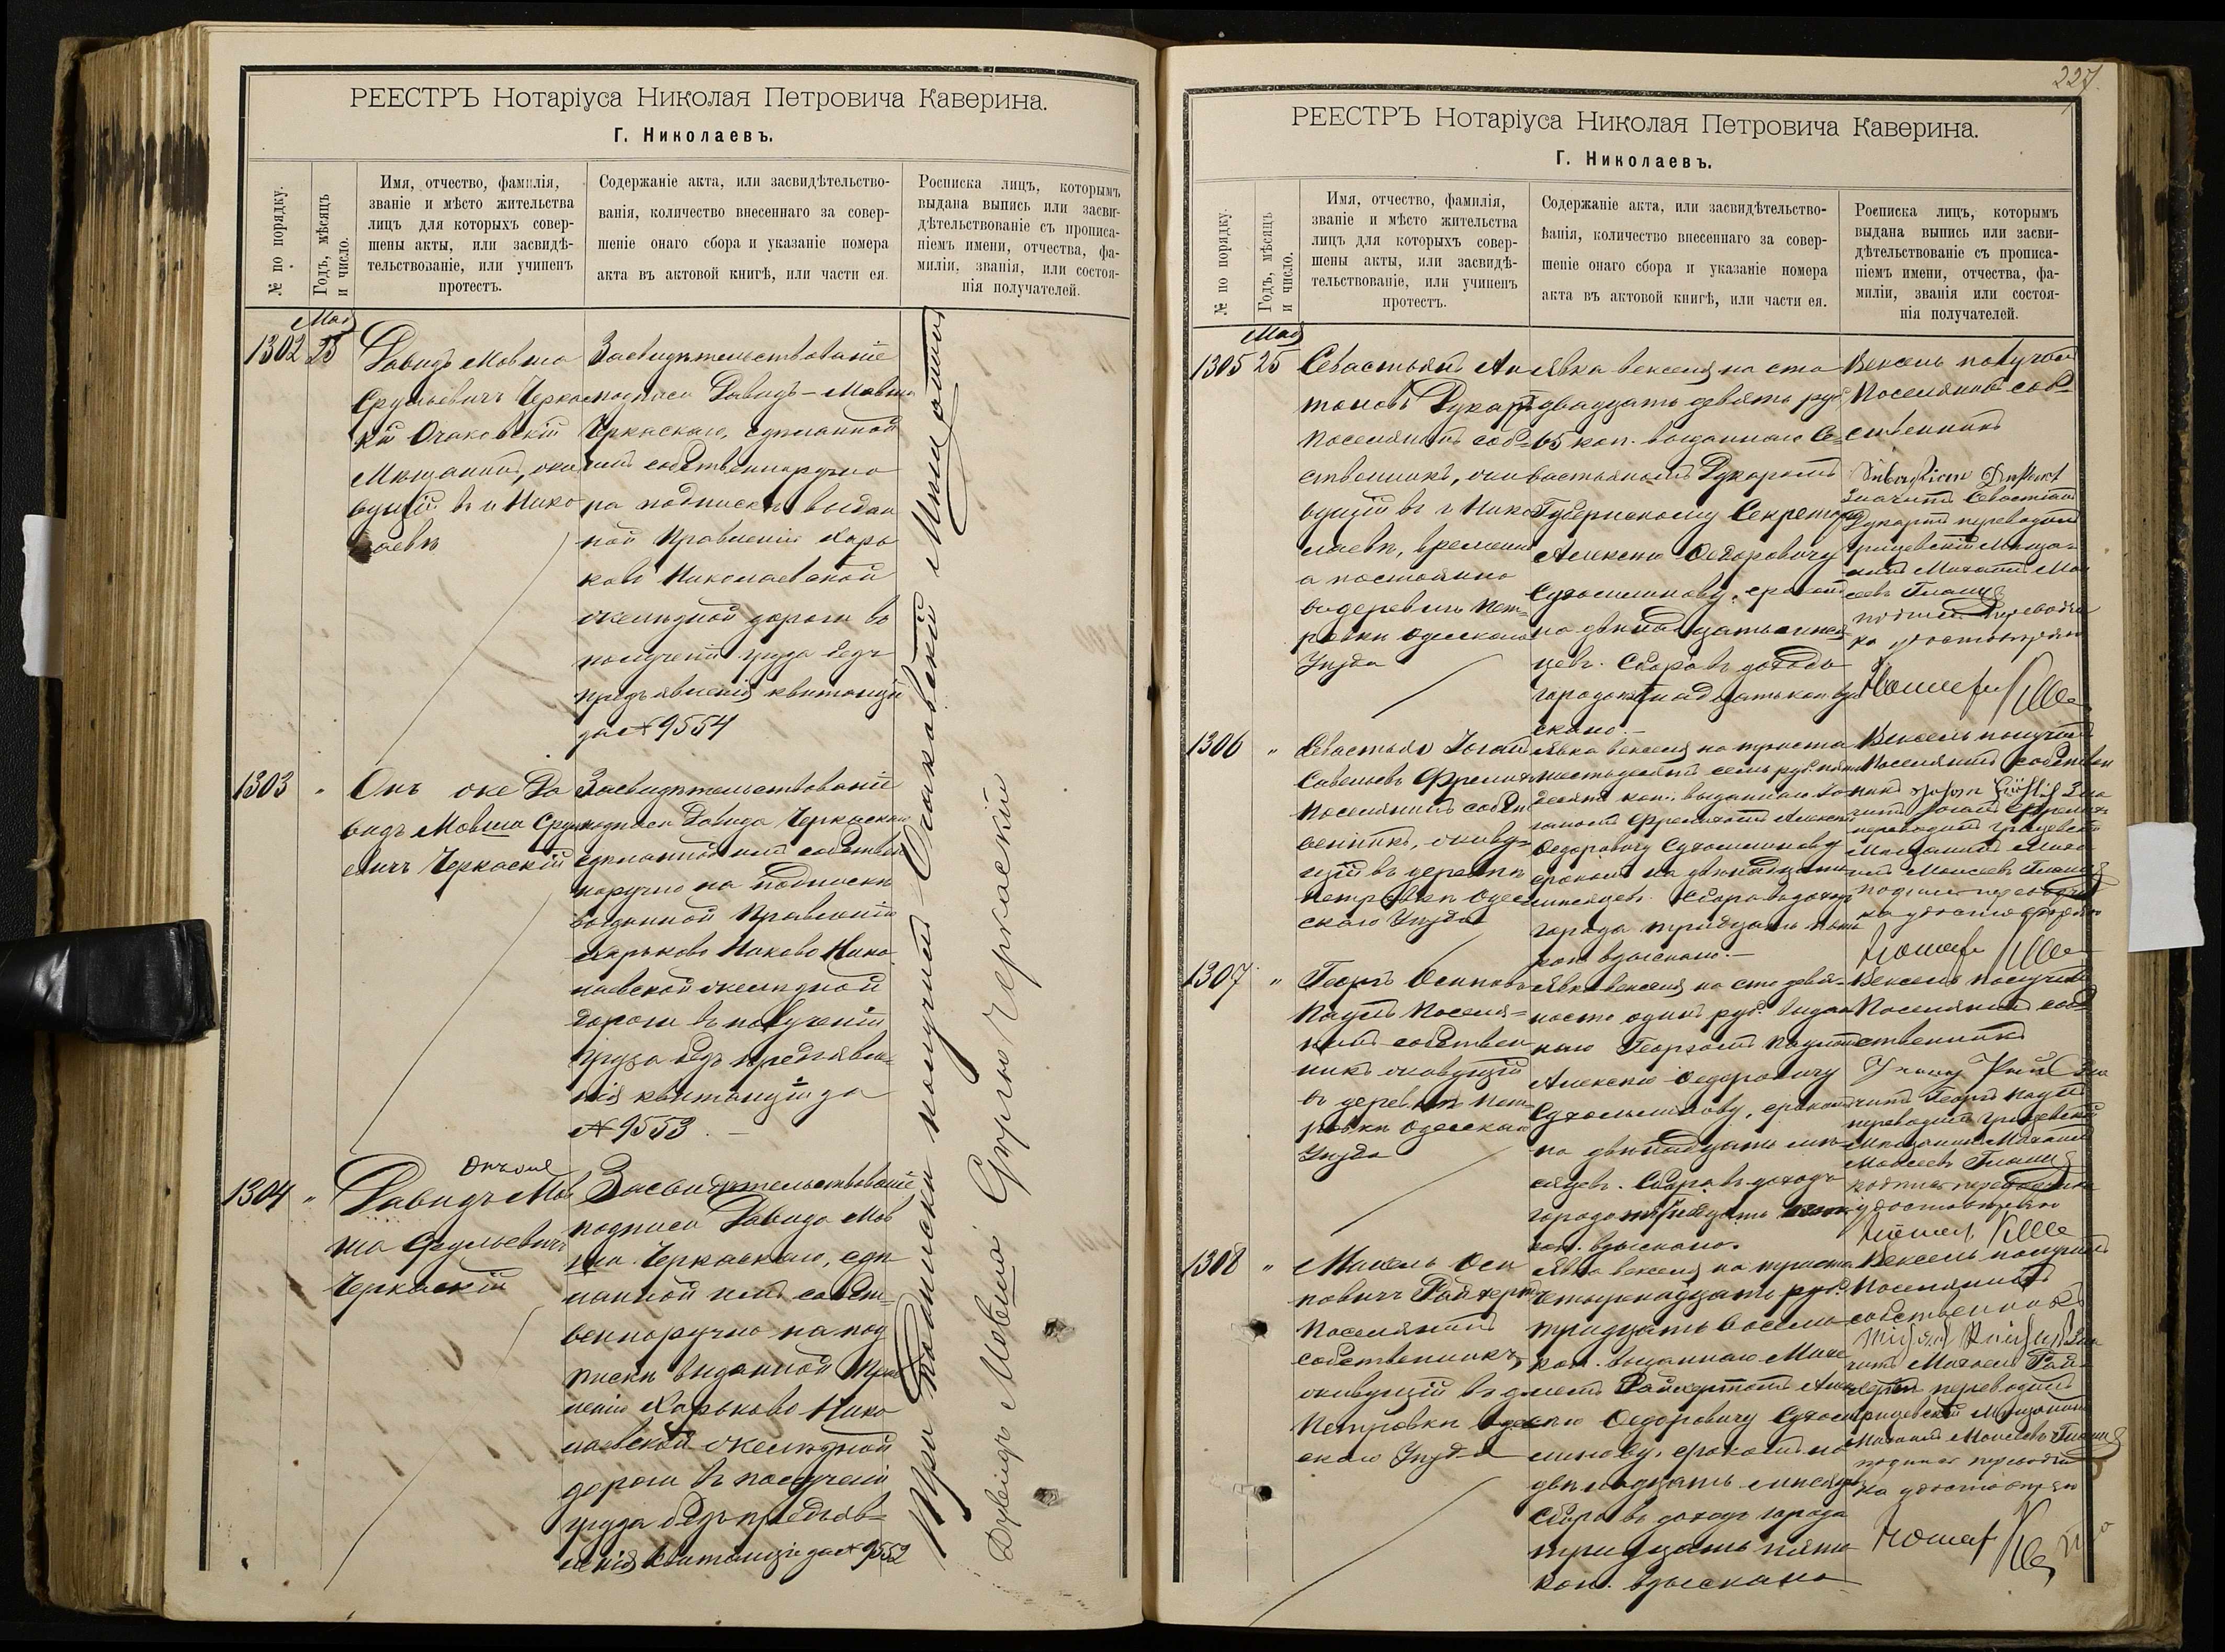 РЕЕСТРЪ Нотаріуса Николая Петровича Каверина.
Г. Николаевъ.
№ по порядку.
Годъ, мѣсяцъ
и число.
Имя, отчество, фамилія,
званіе и мѣсто жительства
лицъ для которыхъ совер-
шены акты, или засвидѣ-
тельствованіе, или учиненъ
протестъ.
Содержаніе акта, или засвидѣтельство-
ванія, количество внесеннаго за совер-
шеніе онаго сбора и указаніе номера
акта въ актовой книгѣ, или части ея.
Росписка лицъ, которымъ
выдана выпись или засви-
дѣтельствованіе съ прописа-
ніемъ имени, отчества, фа-
миліи, званія, или состоя-
нія получателей.
Мая
1302 25
Давидъ Мовша
Срульевичъ Черкас
кій Очаковскій
Мѣщанинъ, жи
вущій въ г. Нико
лаевѣ
Засвидѣтельствованіе
подписи Давидъ-Мовши
Черкаскаго, сдѣланной
имъ собственноручно
на подпискѣ выдан
ной Правленію Харь
ково Николаевской
желѣзной дороги въ
полученіи груза безъ
предъявленія квитанціи
за № 9554
1303 "
Онъ же Да
видъ Мовша Сруль
евичъ Черкаскій
Засвидѣтельствованіе
подписи Давида Черкаскаго
сдѣланной имъ собствен
норучно на подпискѣ
выданной Правленію
Харьково Николаевской желѣзной
дороги въ полученіи
груза безъ предъявле-
нія квитанціи за
№ 9553. —
1304 "
Онъ же
Давидъ Мов
ша Срульевичъ
Черкаскій
Засвидѣтельствованіе
подписи Давида Мов
ши Черкаскаго, сдѣ
ланной имъ собст-
венноручно на под
пискѣ выданной Прав
ленію Харьково Нико
лаевской желѣзной
дороги въ полученіи
груза безъ предъяв-
ленія квитанціи за № 9552
Три подписки получилъ Очаковскій Мѣщанинъ
Дувидъ Мовша Сруль Черкаскій
227.
РЕЕСТРЪ Нотаріуса Николая Петровича Каверина.
Г. Николаевъ.
№ по порядку.
Годъ, мѣсяцъ
и число.
Имя, отчество, фамилія,
званіе и мѣсто жительства
лицъ для которыхъ совер-
шены акты, или засвидѣ-
тельствованіе, или учиненъ
протестъ.
Содержаніе акта, или засвидѣтельство-
ванія, количество внесеннаго за совер-
шеніе онаго сбора и указаніе номера
акта въ актовой книгѣ, или части ея.
Росписка лицъ, которымъ
выдана выпись или засви-
дѣтельствованіе съ прописа-
ніемъ имени, отчества, фа-
миліи, званія или состоя-
нія получателей.
Мая
1305 25
Севастьянъ Ан
тоновъ Дукартъ
поселянинъ соб-
ственникъ, жи
вущій въ г. Нико
лаевѣ, временно
а постоянно
въ деревнѣ Пет-
ровкѣ Одесскаго
Уѣзда
Явка векселя на сто
двадцать девять руб.
65 коп. выданнаго Се-
вастьяномъ Дукартомъ
Губернскому Секретарю
Алексѣю Федоровичу
Сухомлинову, срокомъ
на двѣнадцать мѣся
цевъ. Сбора въ доходъ
города пятнадцать коп. взы
скано. —
Вексель получилъ
Поселянинъ соб-
ственникъ
значитъ Севастьянъ
Дукартъ переводилъ
Мѣща-
нинъ Михаилъ Мои
сеевъ
подпись переводчи
ка удостовѣряю
1306 "
Савельевъ
Поселянинъ собст
венникъ, живу-
щій въ деревнѣ
Петровкѣ Одес
скаго Уѣзда
Явка векселя на триста
шестьдесятъ семь руб.
десятъ коп., выданнаго
Алексѣю
Федоровичу Сухомлинову
срокомъ на двѣнадцать
мѣсяцевъ. Сбора въ доходъ
города тридцать пять
коп. взыскано. —
Вексель получилъ
Поселянинъ собствен
никъ
переводилъ
Мѣщанинъ Миха
илъ Моисеевъ
подпись переводчи
ка удостовѣряю
1307 "
Георгъ Осиповъ
Поселя-
нинъ собствен
никъ живущій
въ деревнѣ Пет
ровкѣ Одесскаго
Уѣзда
Явка векселя на сто девя-
носто одинъ руб. выдан
наго Георгомъ
Алексѣю Федоровичу
Сухомлинову, срокомъ
на двѣнадцать мѣ-
сяцевъ. Сбора въ доходъ
города
коп. взыскано.
Вексель получилъ
Поселянинъ соб-
ственникъ
переводилъ
Мѣщанинъ Михаилъ
Моисеевъ
подпись переводчика
удостовѣряю
1308 "
Михель Оси
повичъ Райхертъ
Поселянинъ
собственникъ,
живущій въ д.
Петровкѣ Одес
скаго Уѣзда
Явка векселя на триста
четырнадцать руб.
тридцать восемь
коп. выданнаго Михе
лемъ Райхертомъ Алек
сѣю Федоровичу Сухом
линову, срокомъ на
двѣнадцать мѣсяцевъ
Сбора въ доходъ города
тридцать пять
коп. взыскано
Вексель получилъ
Поселянинъ
собственникъ
Michael Reichert Зна
читъ Михаель Рай
хертъ переводилъ
Мѣщанинъ
Михаилъ Моисеевъ
подпись переводчи
ка удостовѣряю